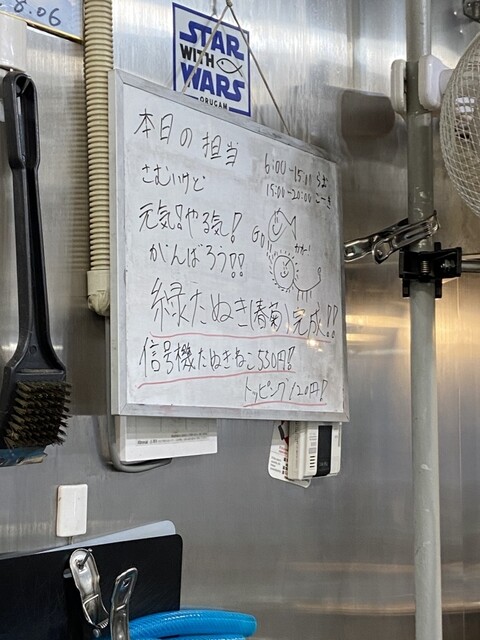 8.06
STAR
WITH
WARS
ORUGAM
本日の担当
6:00-15:00 らむ
15:00-20:00 こーき
さむいけど
元気!やる気!
がんばろう!!
GO!
ガオー!
緑たぬき(春菊)完成!!
信号機たぬきねこ550円!
トッピング120円!